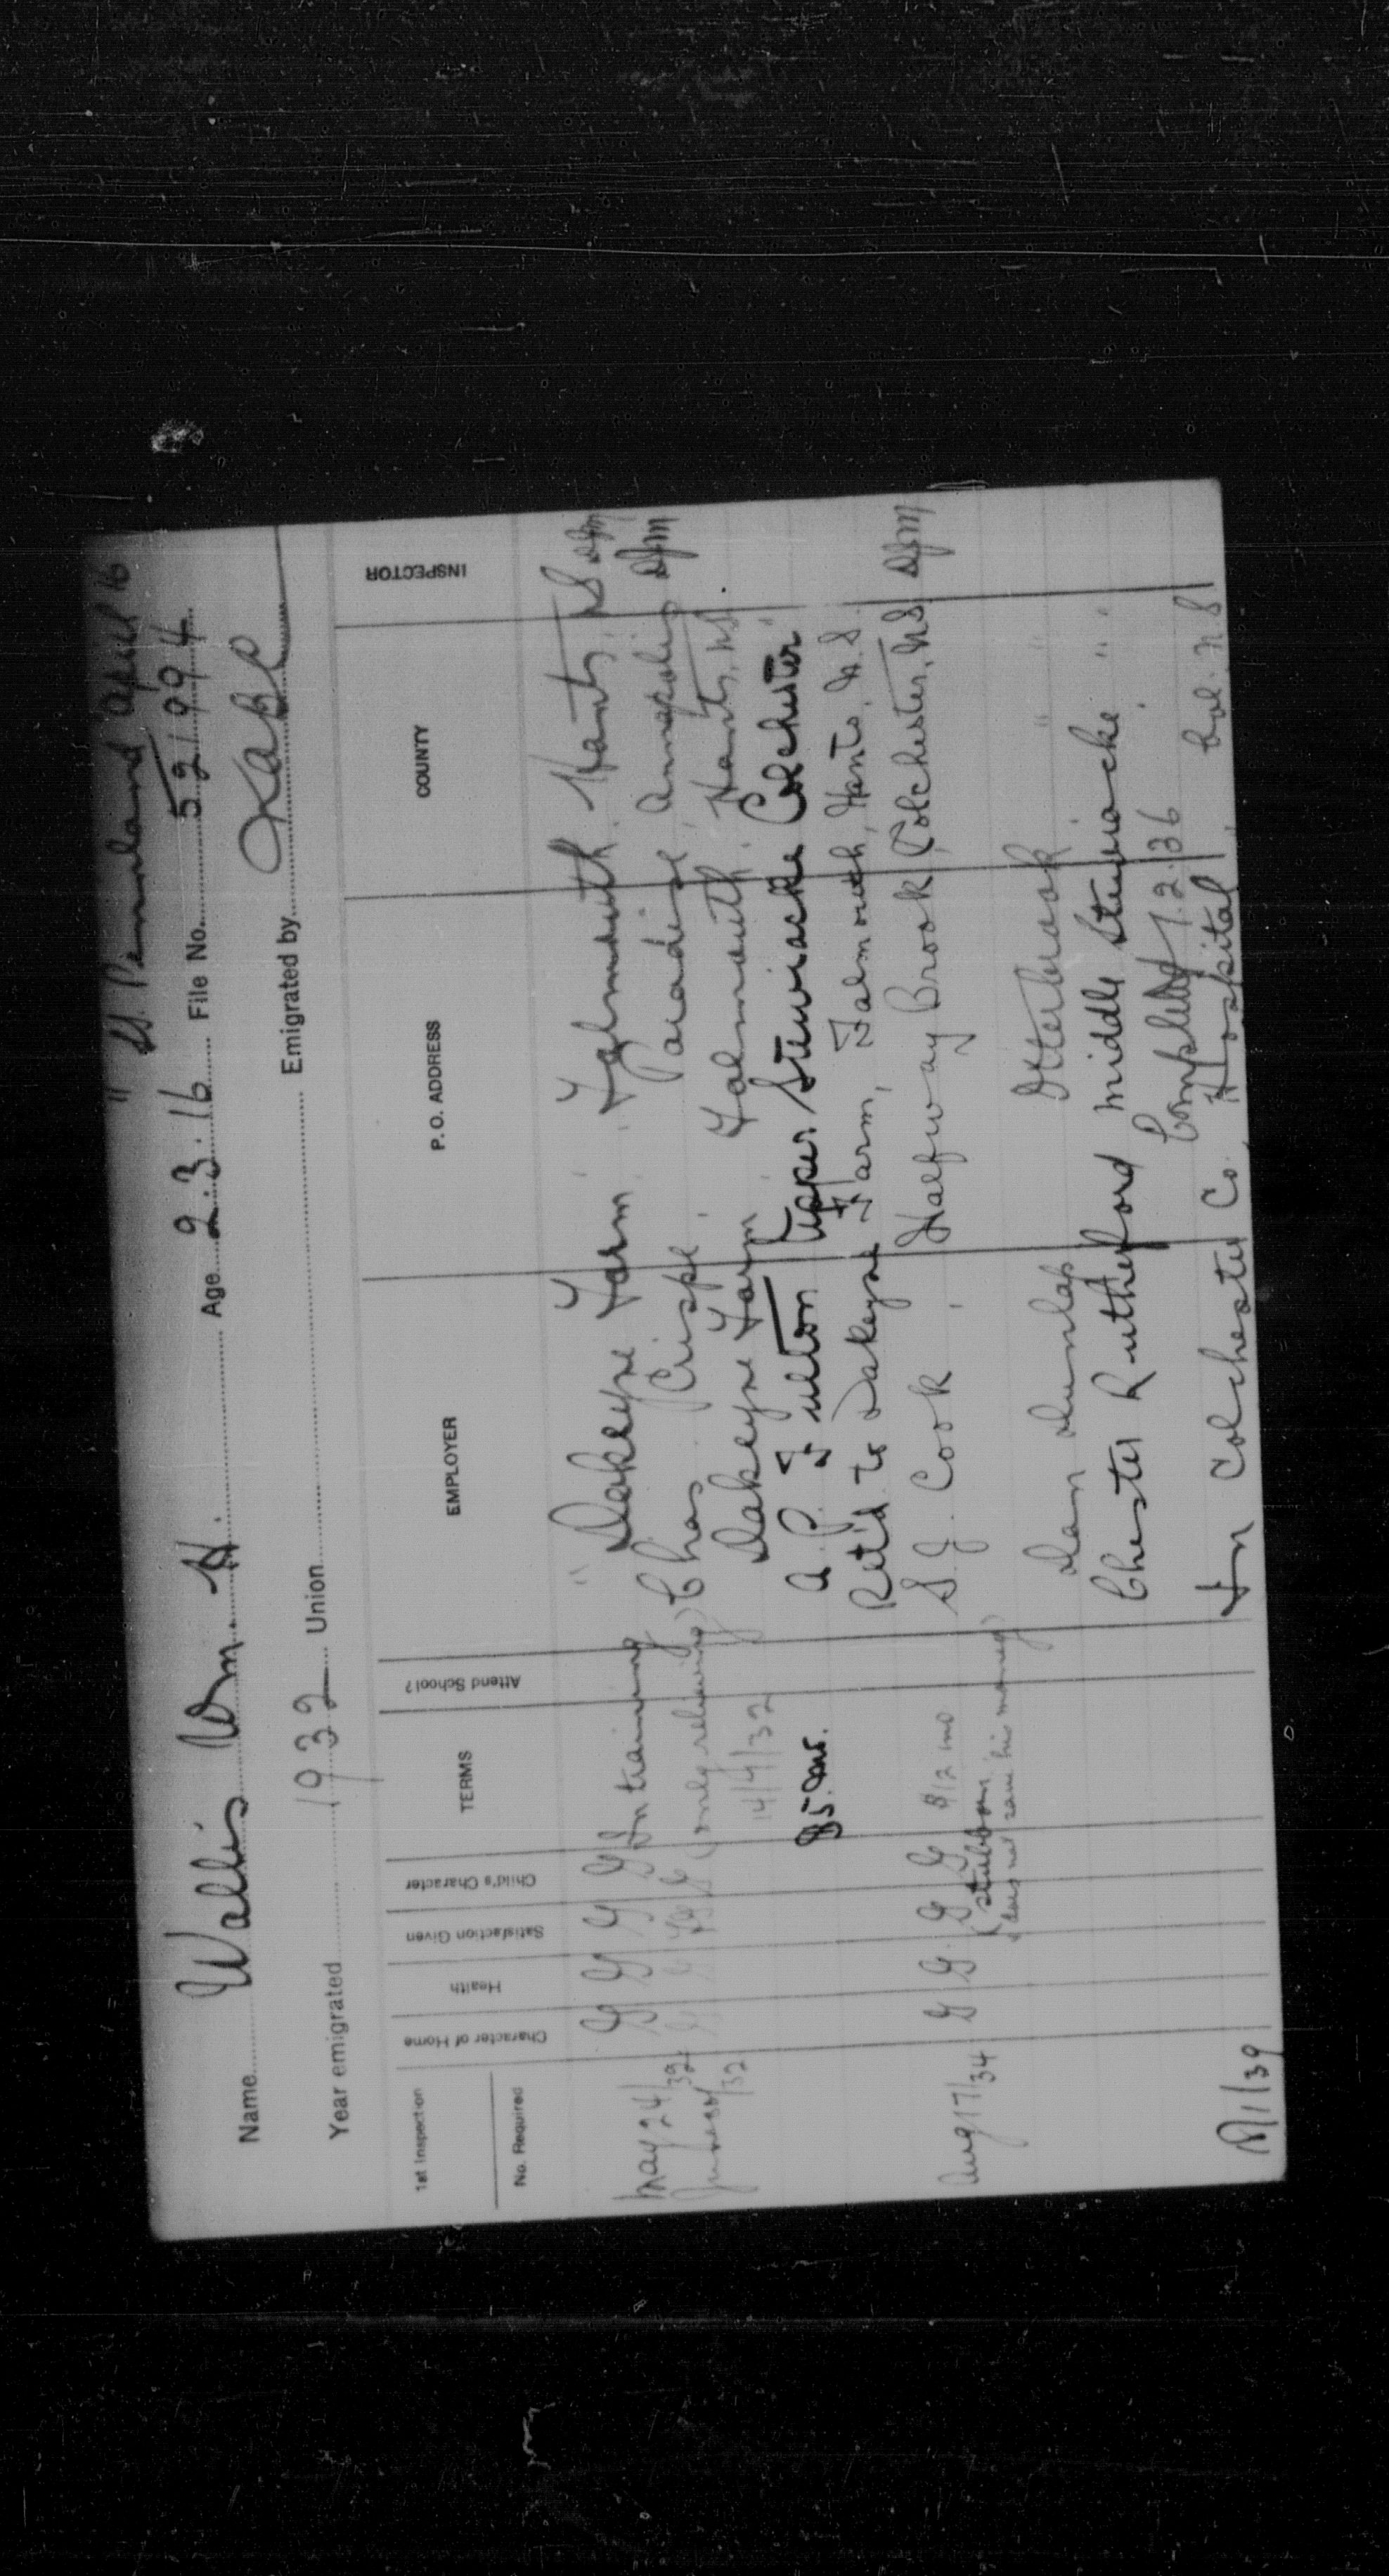 " SS. Pennland April 16
Name Wallis Wm. H. Age 2.3.16 File No. 521994
Year emigrated 1932 Union Emigrated by
1st Inspection No. Required Character of Home Health Satisfaction Given Child's Character TERMS Attend School? EMPLOYER P. O. ADDRESS COUNTY INSPECTOR
" Dakeyne Farm, Falmouth, Hants, N S
May 24/32 G G G G In training Chas. Crispe, Paradise, Annapolis
June 30/32 (only relieving) Dakeyne Farm Falmouth, Hants, N.S.
14/4/32
$5. mo. A. P. Fulton Upper Stewiacke Colchester
Ret'd to Dakeyne Farm, Falmouth, Hants, N.S.
S. J. Cook, Halfway Brook, Colchester, N.S.
Aug 17/34 G G G G $12 mo
(stubborn
does not save his money)
Dan Dunlap Otterbrook " "
Chester Rutherford middle Stewiacke, " "
Completed 1.2.36
9/1/39 In Colchester Co. Hospital, Col. N.S.